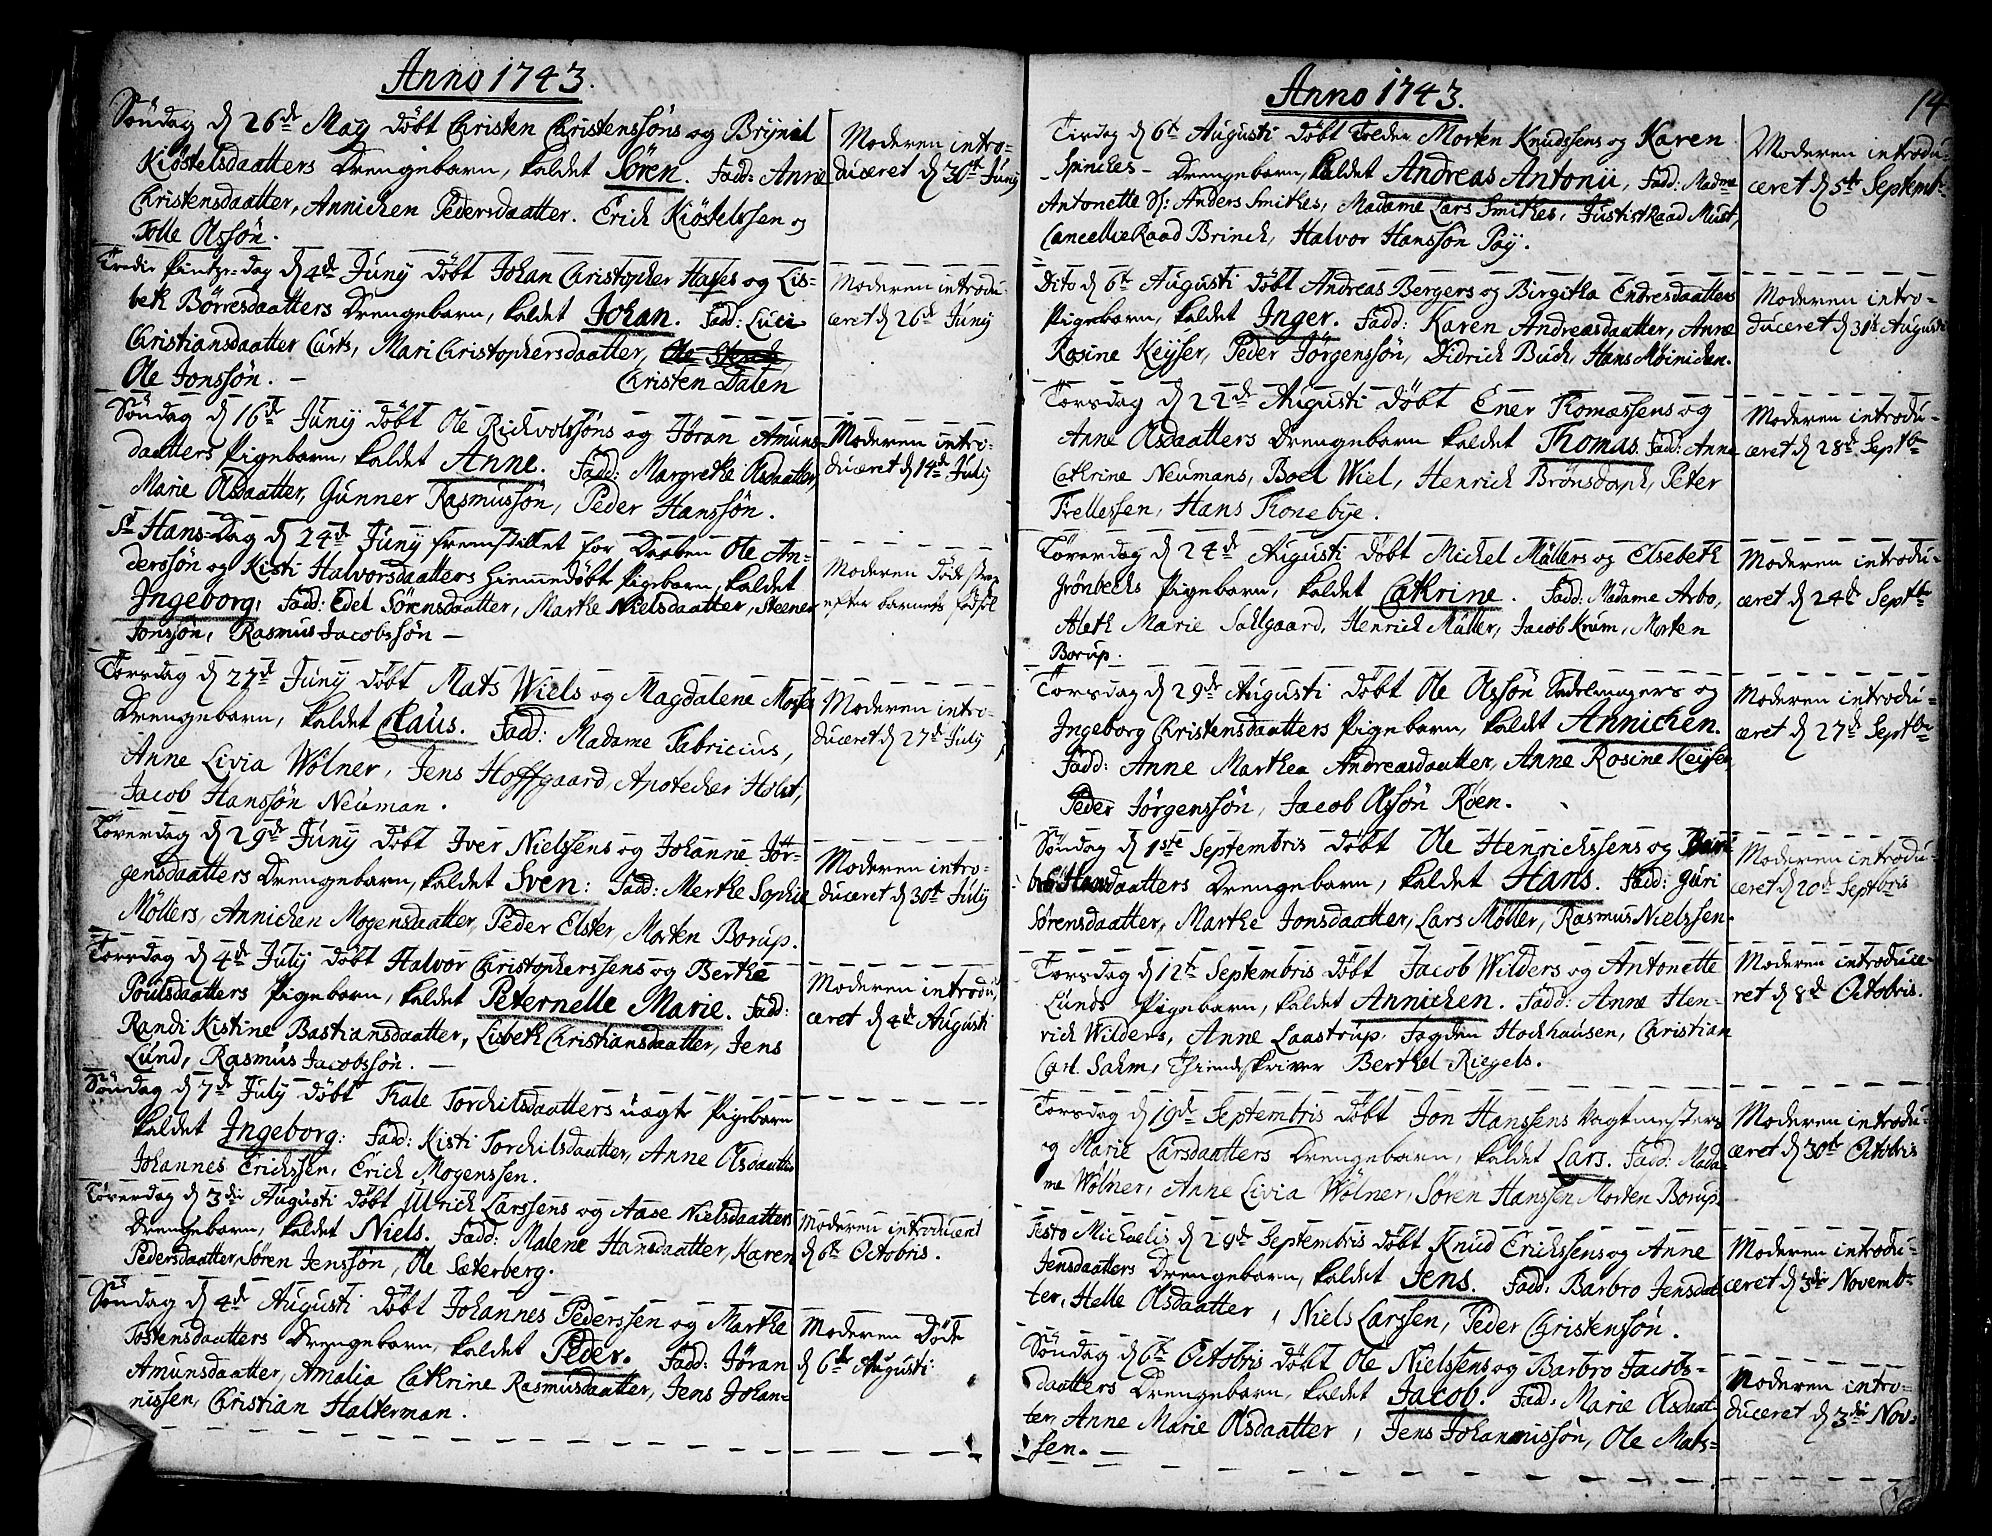 Anno 1743.
Søndag d 26de May døbt Christen Christenssøns og Brynil
Kiøstelsdaatters Drengebarn, kaldet Søren. Fadd: Anne
Christensdaatter, Annichen Pedersdaatter. Erich Kiøstelssen og
Tolle Olssøn.
Moderen intro-
duceret d 30te Juny
Tredie Pintze-dag d 4de Juny døbt Johan Christopher Hases og Lis-
beth Børresdaatters Drengebarn, kaldet Johan. Fadd: Luci
Christiansdaatter Curts, Mari Christophersdaatter,
Ole Jonssøn. – Christen Dalen
Moderen introdu
ceret d 26de Juny
Søndag d 16de Juny døbt Ole Richvolssøns og Jøran Amuns-
daatters Pigebarn, kaldet Anne. Fadd: Margrethe Olsdaatter,
Marie Olsdaatter, Gunner Rasmussøn, Peder Hanssøn.
Moderen intro-
duceret d 14de July
St Hans-Dag d 24de Juny fremstillet for Daaben Ole An-
derssøn og Kisti Halvorsdaatters hiemmedøbt Pigebarn, kaldet
Ingeborg, Fadd: Edel Sørensdaatter, Marthe Nielsdaatter, Steener
Jonssøn, Rasmus Jacobssøn –
Moderen døde strax
efter barnets fødsel
Torsdag d 27de Juny døbt Mats Wiels og Magdalene
Drengebarn, kaldet Claus. Fadd: Madame Fabricius,
Anne Livia Wølner, Jens Hoffgaard, Apotecher Holst,
Jacob Hanssøn Neuman.
Moderen intro-
duceret d 27de July
Løverdag d 29de Juny døbt Iver Nielssens og Johanne Jør-
gensdaatters Drengebarn, kaldet Sven: Fadd: Merthe Sophie
Møllers, Annichen Mogensdaatter, Peder Elster, Morten Borup.
Moderen intro-
duceret d 30te July
Torsdag d 4de July døbt Halvor Christopherssens og Berthe
Poulsdaatters Pigebarn, kaldet Peternelle Marie. Fadd:
Randi Kistine Bastiansdaatter, Lisbeth Christiansdaatter, Jens
Lund, Rasmus Jacobssøn. –
Moderen introdu
ceret d 4de Augusti
Søndag d 7de July døbt Kale Torchilsdaatters uægte Pigebarn
kaldet Ingeborg: Fadd: Kisti Torchilsdaatter, Anne Olsdaatter
Johannes Erichssen, Erich Mogenssen.
Løverdag d 3die Augusti døbt Ulrich Larssens og Aase Nielsdaatters
Drengebarn, kaldet Niels. Fadd: Malene Hansdaatter, Karen
Pedersdaatter, Søren Jenssøn, Ole Sæterberg.
Moderen introduceret
d 6te Octobris.
Søndag d 4de Augusti døbt Johannes Pederssen og Marthe
Tostensdaatters Drengebarn, kaldet Peder. Fadd: Jøran
Amunsdaatter, Amalia Cathrine Rasmusdaatter, Jens Johan-
nissen, Christian Halterman.
Moderen døde
d 6te Augusti
Anno 1743.
14
Tirdag d 6te Augusti døbt Morten Knudssens og Karen
Drengebarn, kaldet Andreas Antonii, Fadd: Madme
Antonette Sl: Anders Smithes, Madame Lars Smithes, Justitzraad Must,
Cancellie Raad Brinch, Halvor Hanssøn Pay.
Moderen introdu-
ceret d 5te Septembr
Dito d 6te Augusti døbt Andreas Bergers og Birgitha Endresdaatters
Pigebarn, kaldet Inger. Fadd: Karen Andreasdaatter, Anne
Rosine Keyser, Peder Jørgenssøn, Didrich Buch, Hans Møinichen.
Moderen intro-
duceret d 31te Augusti
Torsdag d 22de Augusti døbt Ener Thomassens og
Anne Olsdaatters Drengebarn kaldet Thomas. Fadd: Anne
Cathrine Neumans, Boel Wiel, Henrich Brønsdorph, Peter
Trellessen, Hans Tronebye.
Moderen introdu-
ceret d 28de Septbr
Løverdag d 24de Augusti døbt Michel Müllers og Elsebeth
Grønbechs Pigebarn, kaldet Cathrine. Fadd: Madame Arbo,
Aleth Marie Sahlgaard, Henrich Müller, Jacob Krum, Morten
Borup.
Moderen introdu-
ceret d 24de Septbr
Torsdag d 29de Augusti døbt Ole Olssøn Sadelmagers og
Ingeborg Christensdaatters Pigebarn, kaldet Annichen.
Fadd: Anne Marthea Andreasdaatter, Anne Rosine Keyser,
Peder Jørgenssøn, Jacob Olssøn Røen.
Moderen introdu-
ceret d 27de Septbr
Søndag d 1ste Septembris døbt Ole Henrichssens og
Drengebarn, kaldet Hans. Fadd: Guri
Sørensdaatter, Marthe Jonsdaatter, Lars Møller, Rasmus Nielssen.
Moderen introdu-
ceret d 20de Septbris
Torsdag d 12te Septembris døbt Jacob Wilders og Antonette
Lunds Pigebarn, kaldet Annichen. Fadd: Anne Hen-
rich Wilders, Anne Laastrup, Fogden Hochhausen, Christian
Carl Sahm, Thiendskriver Berthel Riegels.
Moderen introduce-
ret d 8de Octobris.
Torsdag d 19de Septembris døbt Jon Hanssens Vagtmesters
og Marie Larsdaatters Drengebarn, kaldet Lars. Fadd: Mada-
me Wølner, Anne Livia Wølner, Søren Hanssen, Morten Borup.
Moderen introdu-
ceret d 30te Octobris
Festo Michaelis d 29de Septembris døbt Knud Erichssens og Anne
Jensdaatters Drengebarn, kaldet Jens. Fadd: Barbro Jensdat-
ter, Helle Olsdaatter, Niels Larssen, Peder Christenssøn.
Moderen introdu-
ceret d 3die Novembr
Søndag d 6te Octobris døbt Ole Nielssens og Barbro Jacobs-
daatters Drengebarn, kaldet Jacob. Fad: Marie Olsdaat-
ter, Anne Marie Olsdaatter, Jens Johannissøn, Ole Mats-
sen. –
Moderen intro-
duceret d 3die Nov: